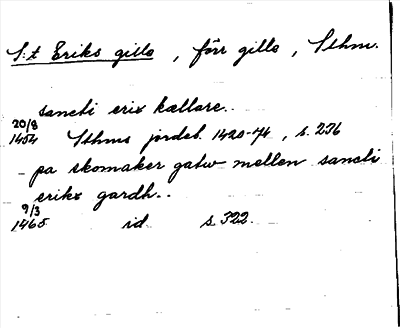 S:t Eriks gille, förr gille, Sthm.
sancti erix kællare..
20/8
1454 Sthms jordeb. 1420-74, s. 276
pa skomaker gatw mellen sancti
erikx gardh..
9/3
1465 id s. 322.